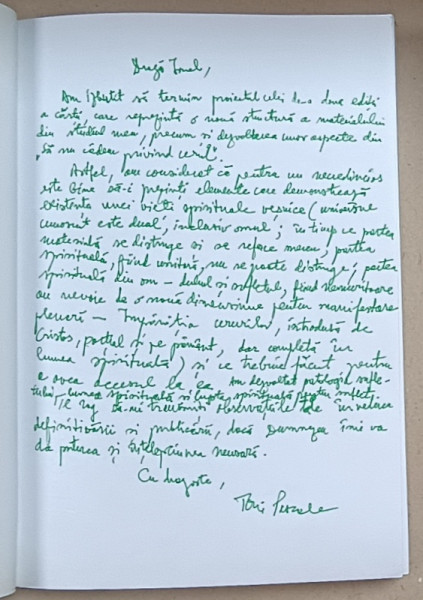 Dragă Ionel,
Am izbutit să termin proiectul celei de-a doua ediții
a cărții, care reprezintă o nouă structură a materialului
din studiul meu, precum și dezvoltarea unor aspecte din
"Să nu cădem privind cerul".
Astfel, am considerat că pentru un necredincios
este bine să-i prezint elemente care demonstrează
existența unei vieți spirituale veșnice (universul
cunoscut este dual, inclusiv omul; în timp ce partea
materială se distruge și se reface mereu, partea
spirituală, fiind unitară, nu se poate distruge; partea
spirituală din om – duhul și sufletul, fiind nemuritoare
au nevoie de o nouă dimensiune pentru manifestare
plenară – Împărăția cerurilor, introdusă de
Cristos, parțial și pe pământ, dar completă în
lumea spirituală) și ce trebuie făcut pentru
a avea accesul la ea. Am dezvoltat patologia sufle-
tului, lumea spirituală și lupta spirituală pentru suflet.
Te rog să-mi trimiți observațiile tale în vederea
definitivării și publicării, dacă Dumnezeu îmi va
da puterea și înțelepciunea necesară.
Cu dragoste,